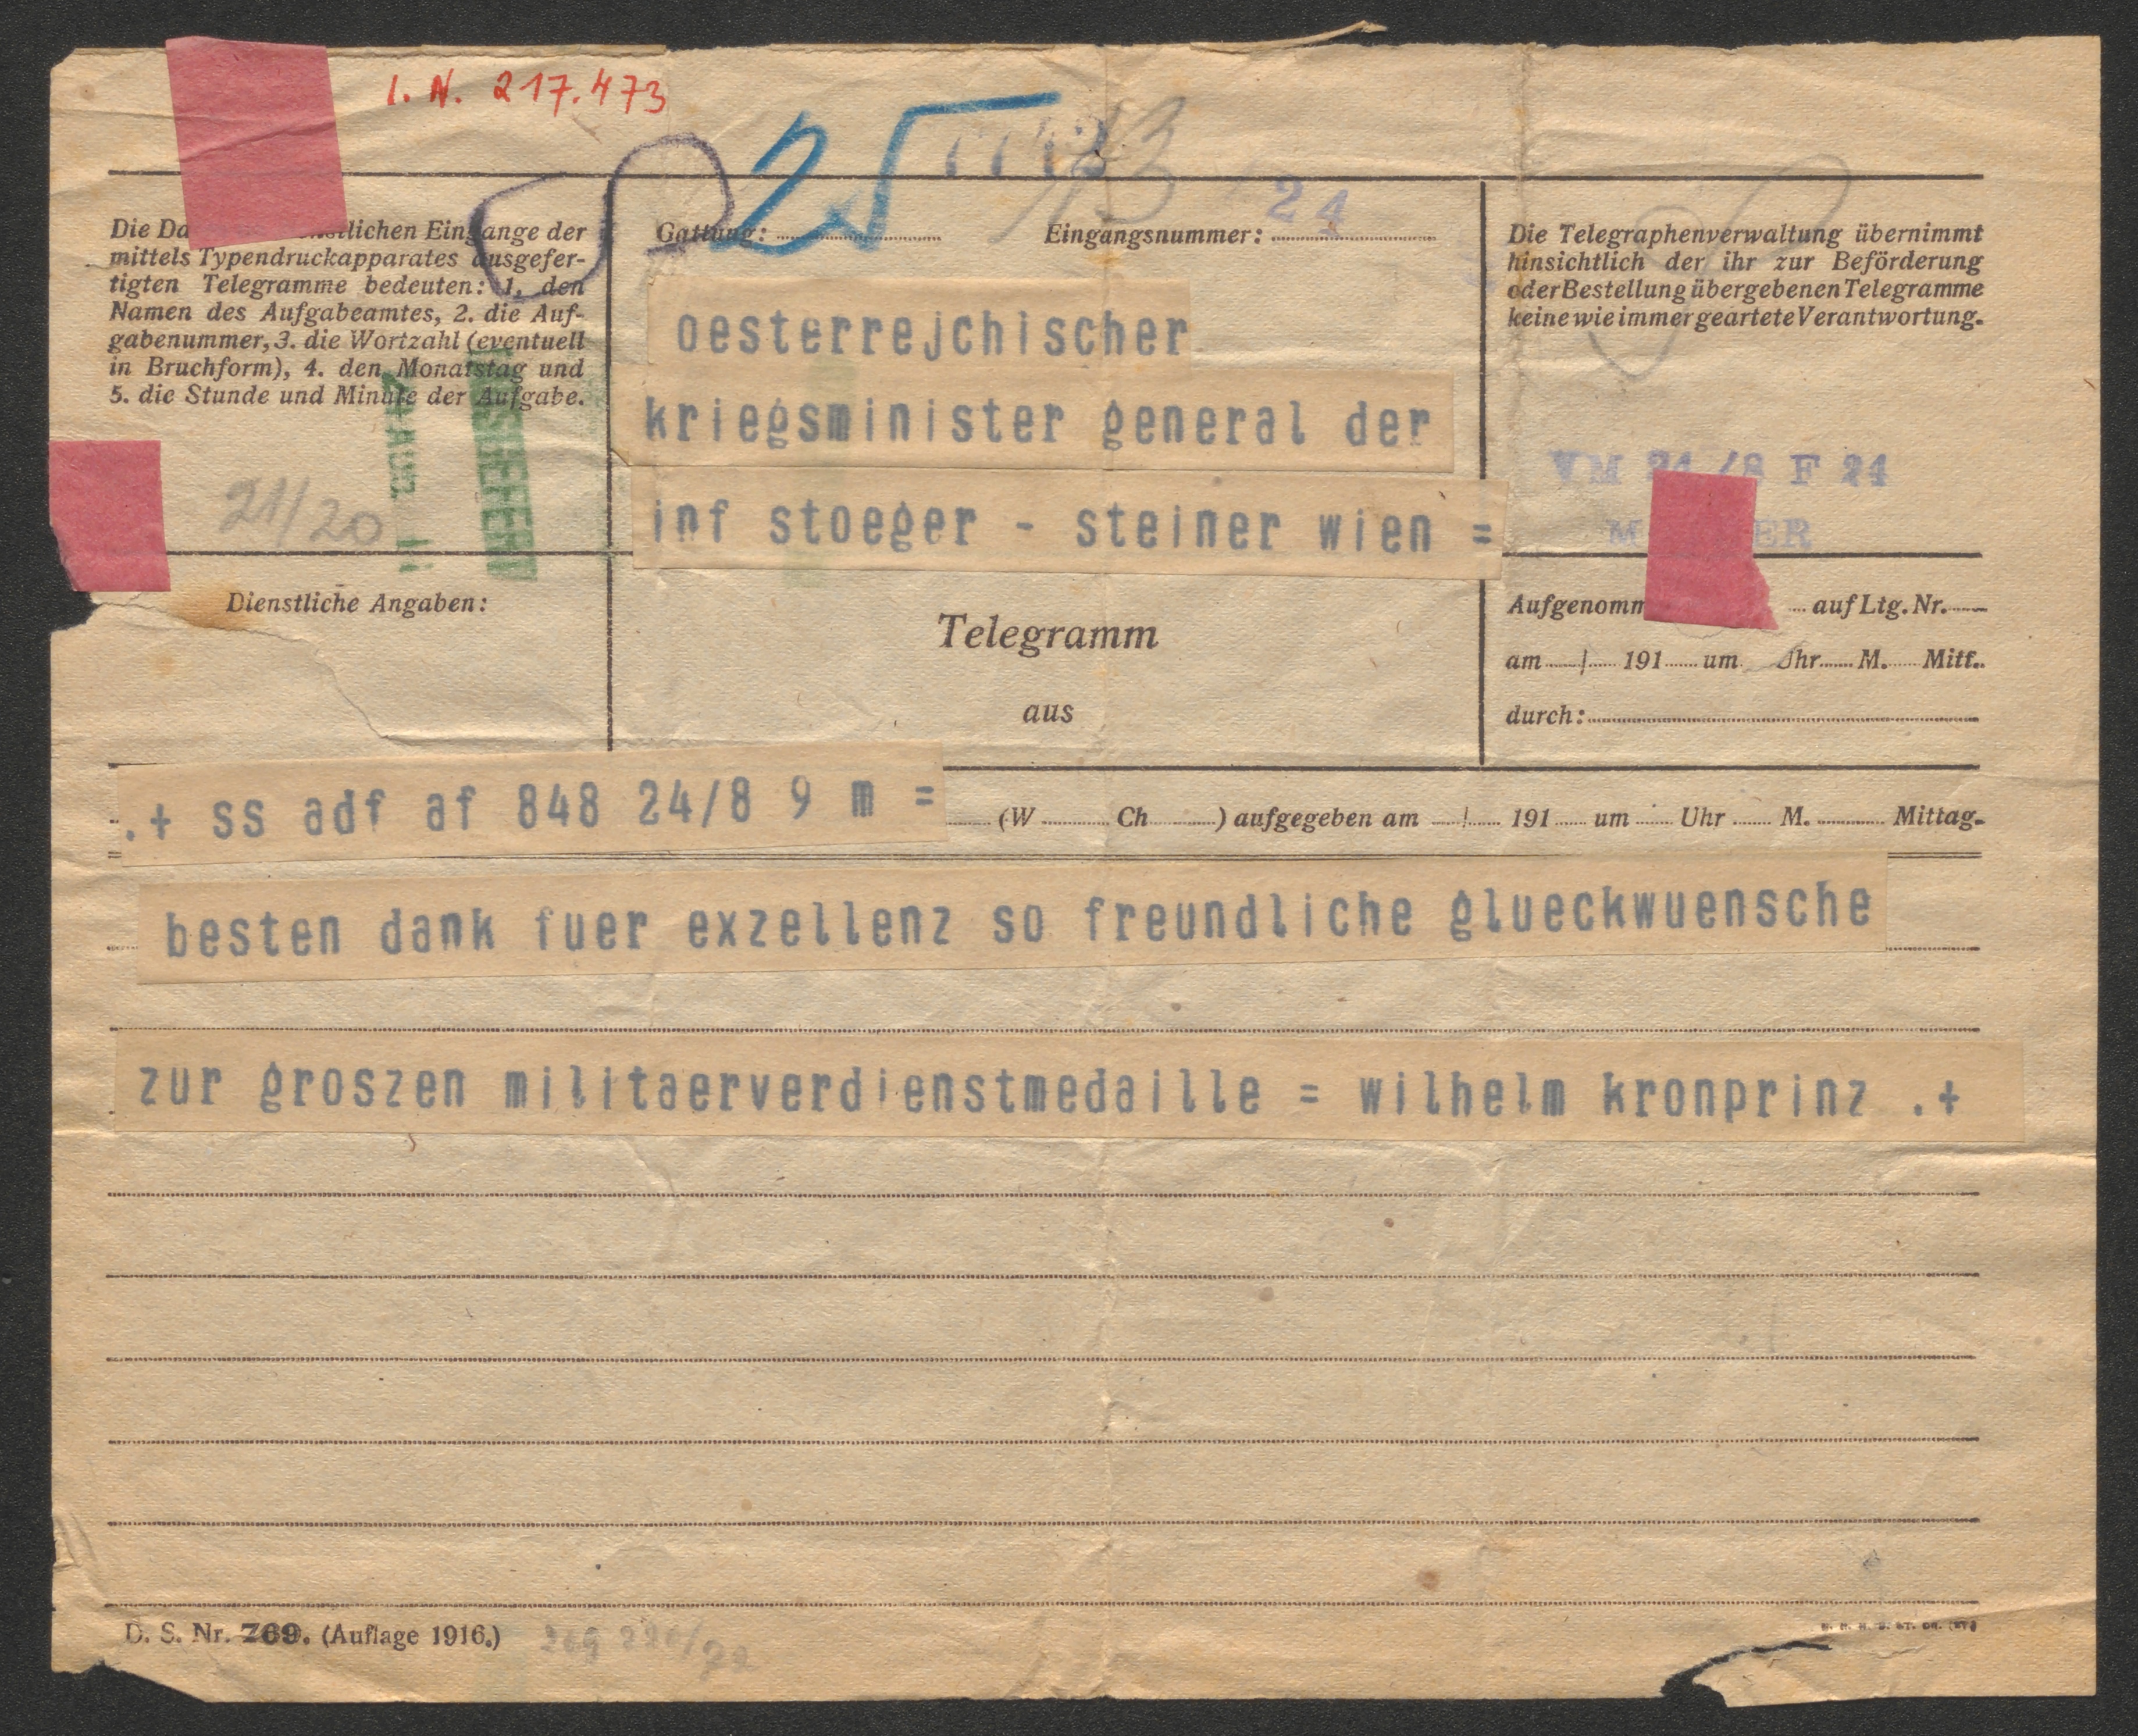 I. N. 217.473
25
24
Die Da lichen Eingange der
mittels Typendruckapparates ausgefer-
tigten Telegramme bedeuten: 1. den
Namen des Aufgabeamtes, 2. die Auf-
gabenummer, 3. die Wortzahl (eventuell
in Bruchform), 4. den Monatstag und
5. die Stunde und Minute der Aufgabe.
21/20
Dienstliche Angaben:
Gattung: Eingangsnummer:
oesterrejchischer
kriegsminister general der
inf stoeger - steiner wien =
Telegramm
aus
Die Telegraphenverwaltung übernimmt
hinsichtlich der ihr zur Beförderung
oder Bestellung übergebenen Telegramme
keine wie immer geartete Verantwortung.
VM 24/8 F 24
Aufgenomm auf Ltg. Nr.
am 191 um Uhr M. Mitt.
durch:
.+ ss adf af 848 24/8 9 m =
(W Ch ) aufgegeben am 191 um Uhr M. Mittag.
besten dank fuer exzellenz so freundliche glueckwuensche
zur groszen militaerverdienstmedaille = wilhelm kronprinz .+
D. S. Nr. 769. (Auflage 1916.)